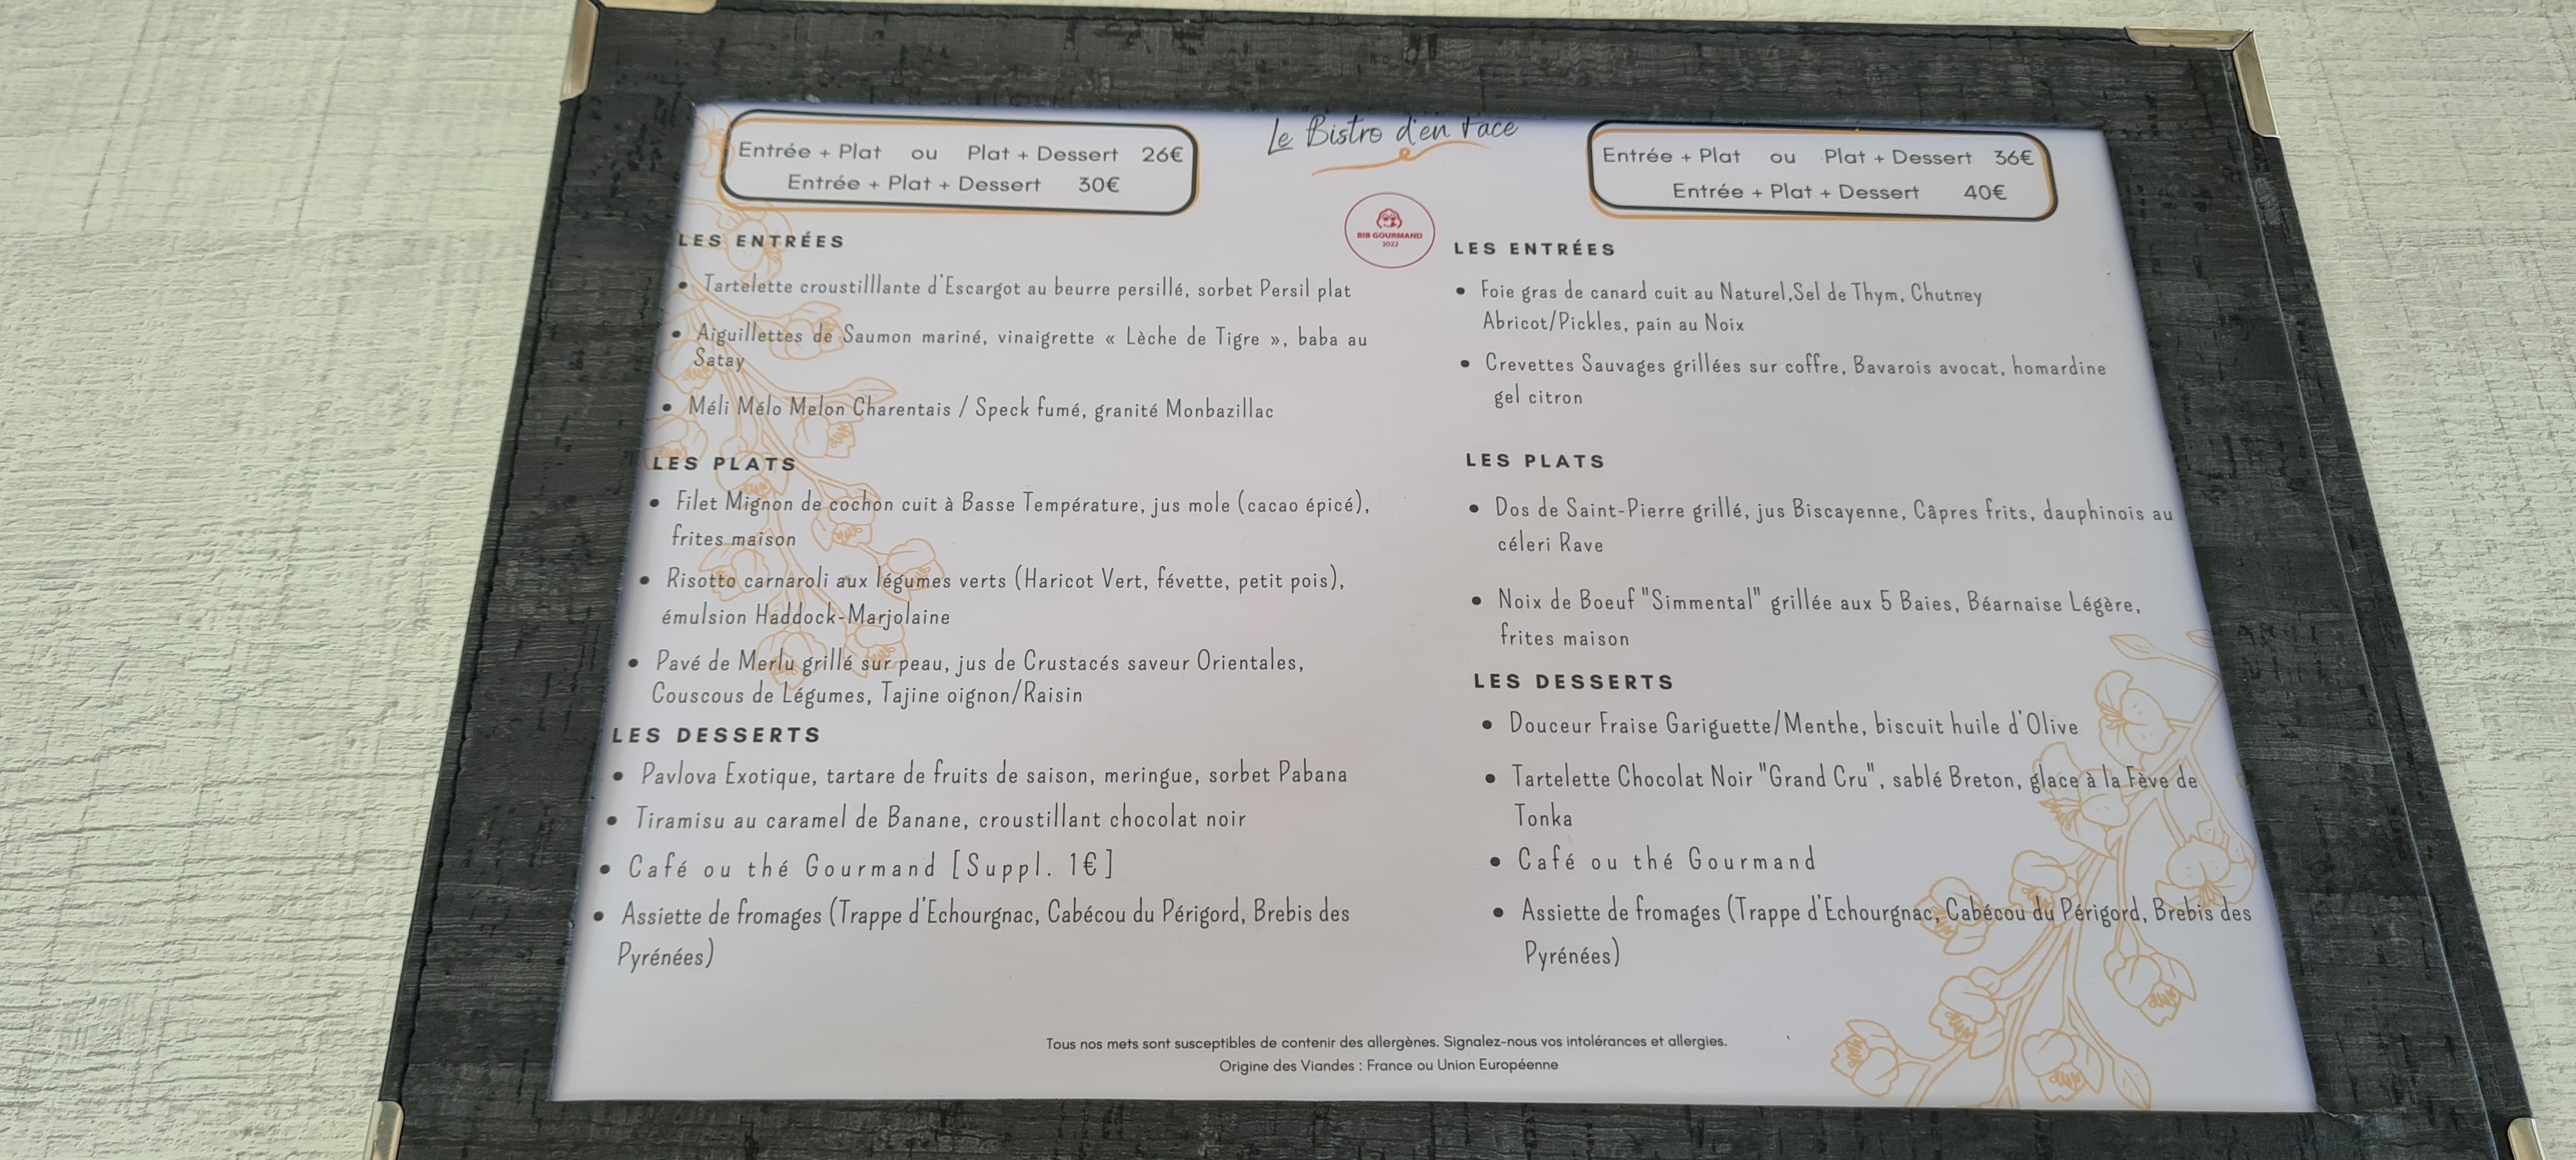 Le Bistro d'en Face
BIB GOURMAND
2022
Entrée + Plat ou Plat + Dessert 26€
Entrée + Plat + Dessert 30€
LES ENTRÉES
• Tartelette croustilllante d'Escargot au beurre persillé, sorbet Persil plat
• Aiguillettes de Saumon mariné, vinaigrette « Lèche de Tigre », baba au
Satay
• Méli Mélo Melon Charentais / Speck fumé, granité Monbazillac
LES PLATS
• Filet Mignon de cochon cuit à Basse Température, jus mole (cacao épicé),
frites maison
• Risotto carnaroli aux légumes verts (Haricot Vert, févette, petit pois),
émulsion Haddock-Marjolaine
• Pavé de Merlu grillé sur peau, jus de Crustacés saveur Orientales,
Couscous de Légumes, Tajine oignon/Raisin
LES DESSERTS
• Pavlova Exotique, tartare de fruits de saison, meringue, sorbet Pabana
• Tiramisu au caramel de Banane, croustillant chocolat noir
• Café ou thé Gourmand [Suppl. 1€]
• Assiette de fromages (Trappe d'Echourgnac, Cabécou du Périgord, Brebis des
Pyrénées)
Entrée + Plat ou Plat + Dessert 36€
Entrée + Plat + Dessert 40€
LES ENTRÉES
• Foie gras de canard cuit au Naturel,Sel de Thym, Chutney
Abricot/Pickles, pain au Noix
• Crevettes Sauvages grillées sur coffre, Bavarois avocat, homardine
gel citron
LES PLATS
• Dos de Saint-Pierre grillé, jus Biscayenne, Câpres frits, dauphinois au
céleri Rave
• Noix de Boeuf "Simmental" grillée aux 5 Baies, Béarnaise Légère,
frites maison
LES DESSERTS
• Douceur Fraise Gariguette/Menthe, biscuit huile d'Olive
• Tartelette Chocolat Noir "Grand Cru" , sablé Breton, glace à la Fève de
Tonka
• Café ou thé Gourmand
• Assiette de fromages (Trappe d'Echourgnac, Cabécou du Périgord, Brebis des
Pyrénées)
Tous nos mets sont susceptibles de contenir des allergènes. Signalez-nous vos intolérances et allergies.
Origine des Viandes : France ou Union Européenne